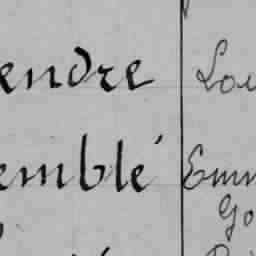 endre Lou
emblé Emm
Go